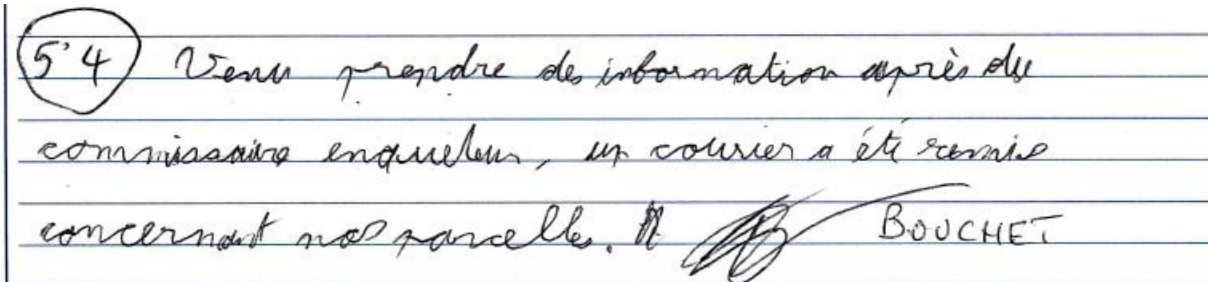 5'4 Venu prendre des information après du
commissaire enquêteur, un courier a été remis
concernant nos parcelles. BOUCHET